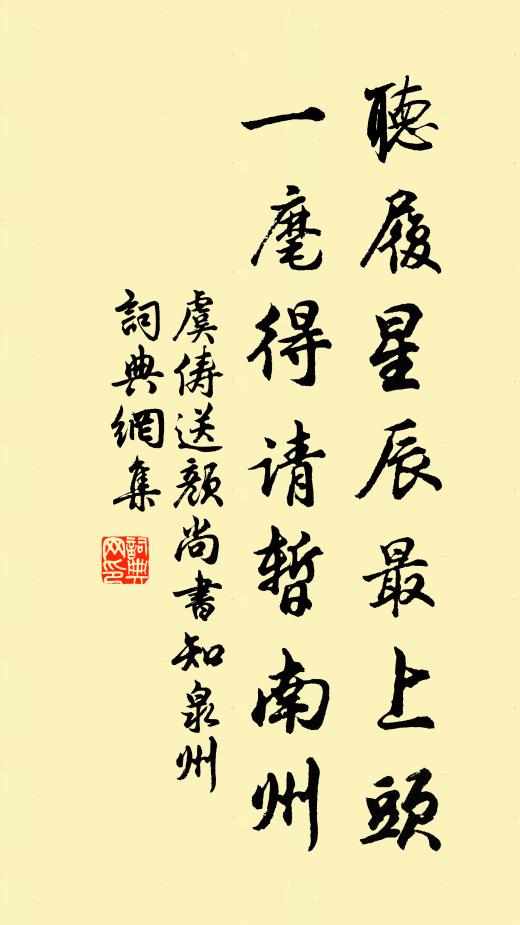 聽履星辰最上頭
一麾得请暫南州
虞儔送顏尚書知泉州
詞典網集
詞典网印